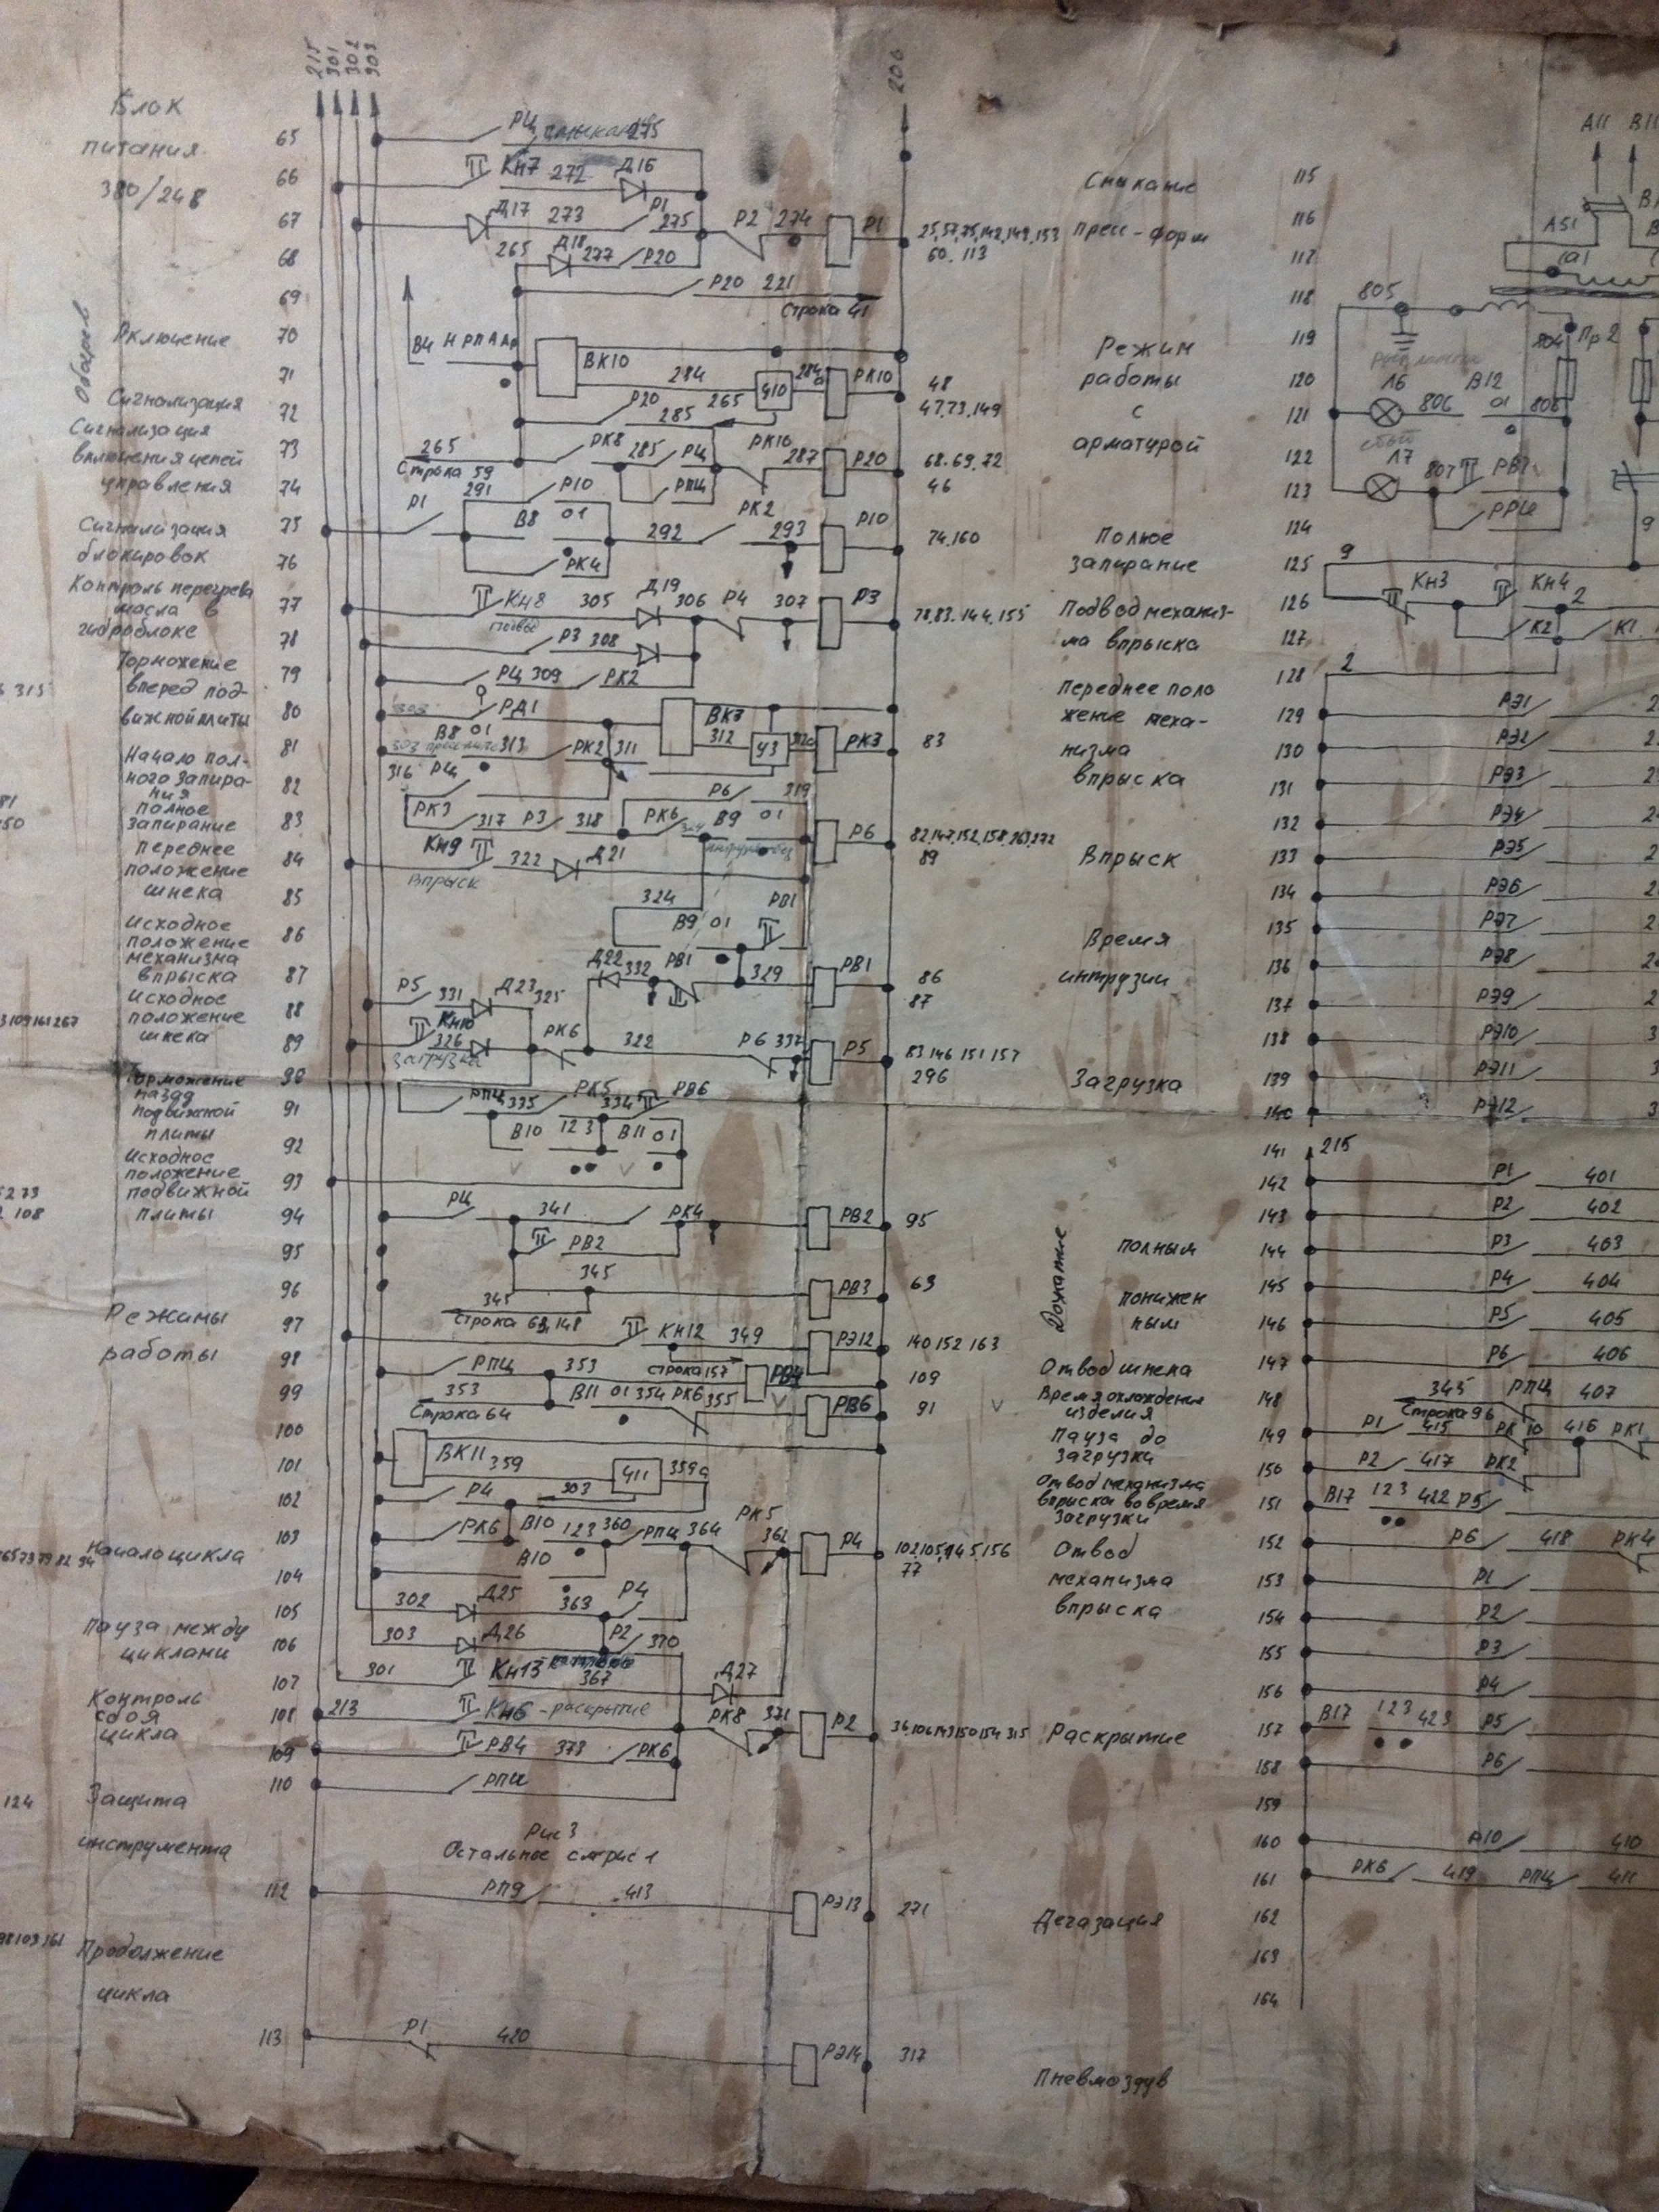 215 301 302 303
206
Блок
питания
380/248
65 РЦ 275
66 Кн7 272 Д16
67 Д17 273 Р1 275 Р2 274 Р1
25,57,75,142,149,153
60. 113
Смыкание
пресс-форм
68 265 Д18 277 Р20
69 Р20 221
Строка 41
Включение
70 В4 Н Р П А Ар ВК10
Режим
работы
с
арматурой
71 284 Ч10 284а РК10
48
47,73,149
Сигнализация
72 Р20 265
285
Сигнализация
включения цепей
управления
73 265 РК8 285 РЦ РК10 287 Р20
Строка 59
68.69.72
46
74 291 Р10 РПЦ
Сигнализация
блокировок
75 Р1 В8 01 292 РК2 293 Р10
74,160
Полное
запирание
76 РК4
Контроль перегрева
масла в
гидроблоке
77 Кн8 305 Д19 306 Р4 307 Р3
78,83.144,155
Подвод механиз-
ма впрыска
78 Р3 308
Торможение
вперед под-
вижной плиты
79 РЦ 309 РК2
80 303 РД1 ВК3
Переднее поло
жение меха-
низма
впрыска
81 В8 01 313 РК2 311 312 У3 РК3
83
Начало пол-
ного запира-
ния
82 316 РЦ Р6 319
полное
запирание
83 РК3 317 Р3 318 РК6 В9 01 Р6
82,147,152,158,263,272
89
Впрыск
переднее
положение
шнека
84 Кн9 322 Д21
Впрыск
85 324 РВ1
Исходное
положение
механизма
впрыска
86 В9 01
Время
интрузии
87 Д22 332 РВ1 329 РВ1
86
87
Исходное
положение
шнека
88 Р5 331 Д23 325
89 Кн10 326 РК6 322 Р6 337 Р5
загрузка
83.146.151.157
296
Загрузка
Торможение
назад
подвижной
плиты
90 РПЦ 335 РК5 334 РВ6
91
92 В10 123 В11 01
Исходное
положение
подвижной
плиты
93
94 РЦ 341 РК4 РВ2 95
95 РВ2
Дожатие
полным
понижен
ным
96 345 РВ3 63
345
Строка 63,148
Режимы
работы
97 Кн12 349 РЭ12 140 152 163
строка 157
98 РПЦ 353 РВ4 109
Отвод шнека
Время охлаждения
изделия
99 353 В11 01 354 РК6 355 РВ6 91
Строка 64
100
Пауза до
загрузки
101 ВК11 359 Ч11 359а
Отвод механизма
впрыска во время
загрузки
102 Р4 303
103 РК6 В10 123 360 РПЦ 364 РК5 362 Р4
102,105,145,156
77
Отвод
механизма
впрыска
Начало цикла
104 В10
105 302 Д25 363 Р4
Пауза между
циклами
106 303 Д26 Р2 370
107 301 Кн13 367 Д27
Контроль
сбоя
цикла
108 213 Кн6 -раскрытие РК8 371 Р2
36,106,143,150,154,315
Раскрытие
109 РВ4 373 РК6
110 РПЦ
Защита
инструмента
Рис 3
Остальное см рис 1
112 РП9 413 РЭ13 271
Дегазация
Продолжение
цикла
113 Р1 420 РЭ14 317
Пневмоздув
Обогрев
115
116
117
118 805
119 804 Пр2
120
121 Л6 806 В12 01 806
122
123 Л7 807 РВ7
124 РРЦ
125 9
126 Кн3 Кн4 2
127 К2 К1
128 2
129 РЭ1
130 РЭ2
131 РЭ3
132 РЭ4
133 РЭ5
134 РЭ6
135 РЭ7
136 РЭ8
137 РЭ9
138 РЭ10
139 РЭ11
140 РЭ12
141 215
142 Р1 401
143 Р2 402
144 Р3 403
145 Р4 404
146 Р5 405
147 Р6 406
148 345 РПЦ 407
Строка 96
149 Р1 415 РК10 416 РК1
150 Р2 417 РК2
151 В17 123 422 Р5
152 Р6 418 РК4
153 Р1
154 Р2
155 Р3
156 Р4
157 В17 123 423 Р5
158 Р6
159
160 Р10 410
161 РК6 419 РПЦ 411
162
163
164
А11 В11
А51